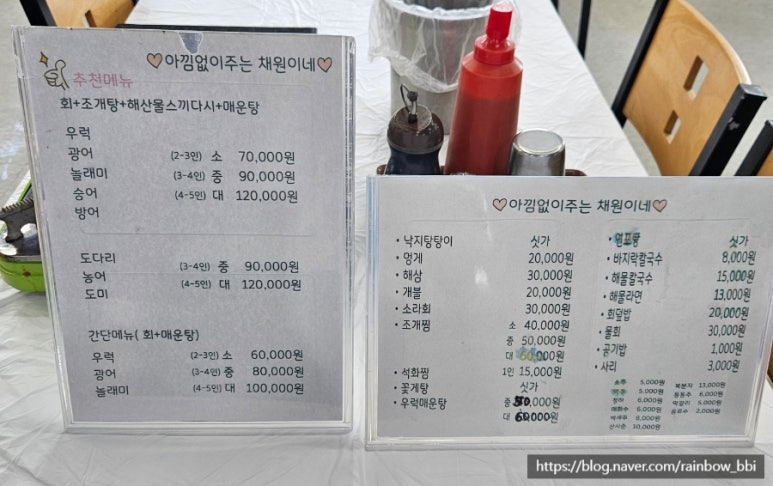 ♡아낌없이주는 채원이네♡
추천메뉴
회+조개탕+해산물스끼다시+매운탕
우럭
광어 (2-3인) 소 70,000원
놀래미 (3-4인) 중 90,000원
숭어 (4-5인) 대 120,000원
방어
도다리 (3-4인) 중 90,000원
농어 (4-5인) 대 120,000원
도미
간단메뉴( 회+매운탕)
우럭 (2-3인) 소 60,000원
광어 (3-4인) 중 80,000원
놀래미 (4-5인) 대 100,000원
♡아낌없이주는 채원이네♡
• 낙지탕탕이 싯가
• 멍게 20,000원
• 해삼 30,000원
• 개불 20,000원
• 소라회 30,000원
• 조개찜 소 40,000원
중 50,000원
대 60,000원
• 석화찜 1인 15,000원
• 꽃게탕 싯가
• 우럭매운탕 중 50,000원
대 60,000원
• 연포탕 싯가
• 바지락칼국수 8,000원
• 해물칼국수 15,000원
• 해물라면 13,000원
• 회덮밥 20,000원
• 물회 30,000원
• 공기밥 1,000원
• 사리 3,000원
소주 5,000원
맥주 5,000원
청하 6,000원
매화수 6,000원
백세주 8,000원
산사춘 10,000원
복분자 13,000원
동동주 8,000원
막걸리 5,000원
음료수 2,000원
https://blog.naver.com/rainbow_bbi